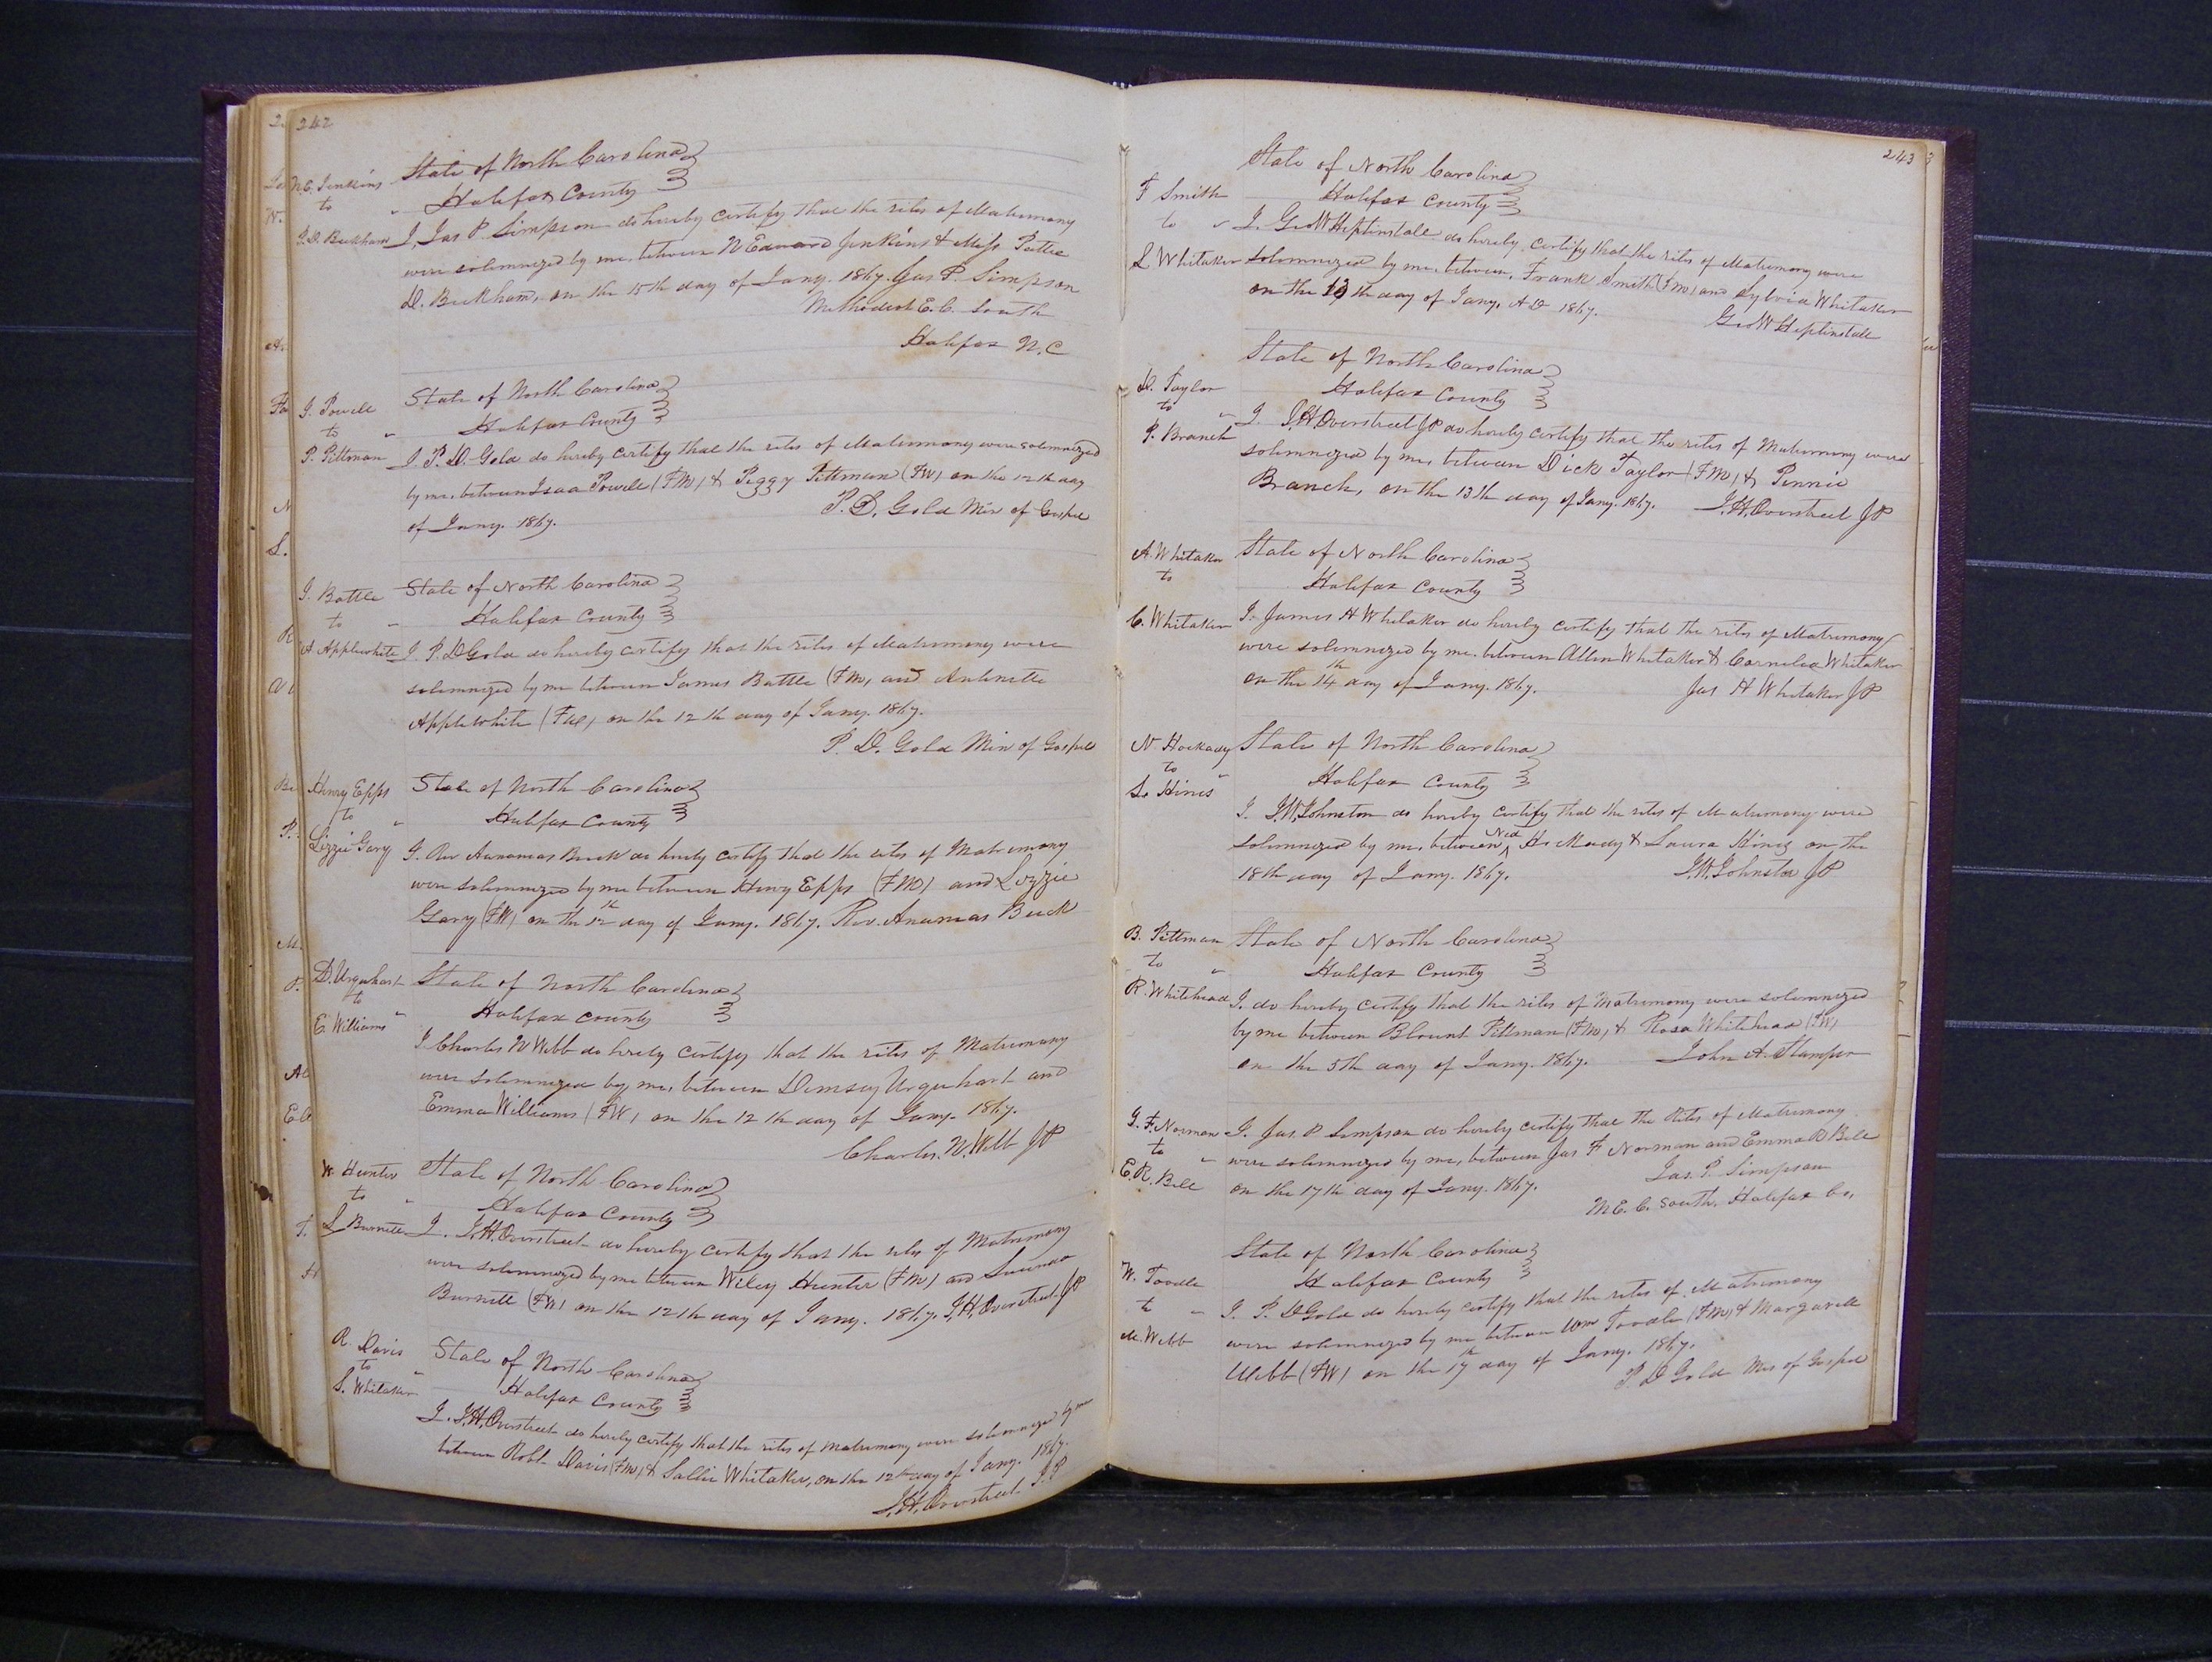 242
N. E. Jenkins
to
P. D. Beckham
State of North Carolina
Halifax County
I, Jas P. Simpson do hereby certify that the rites of Matrimony
were solemnized by me, between N Edward Jenkins & Miss Pattie
D. Beckham, on the 15th day of Jany. 1867. Jas P. Simpson
Methodist E. C. South
Halifax N. C
I. Powell
to
P. Pittman
State of North Carolina
Halifax County
I P. D. Gold do hereby certify that the rites of Matrimony were solemnized
by me, between Isaa Powell (FM) & Peggy Pittman (FW) on the 12th day
of Jany. 1867.
P. D. Gold Min of Gospel
J. Battle
to
A Applewhite
State of North Carolina
Halifax County
I P. D Gold do hereby certify that the rites of Matrimony were
solemnized by me between James Battle (FM) and Antinette
Applewhite (FW) on the 12th day of Jany. 1867.
P. D. Gold Min of Gospel
Henry Epps
to
Lizzie Gary
State of North Carolina
Halifax County
I. Rev Ananias Buck do hereby certify that the rites of Matrimony
were solemnized by me between Henry Epps (FM) and Lizzie
Gary (FW) on the 12th day of Jany. 1867. Rev. Ananias Buck
D. Urquhart
to
E. Williams
State of North Carolina
Halifax County
I Charles N Webb do hereby certify that the rites of Matrimony
were solemnized by me, between Demsey Urquhart and
Emma Williams (FW) on the 12th day of Jany. 1867.
Charles. N. Webb JP
W. Hunter
to
L Burnett
State of North Carolina
Halifax County
I. J. H. Overstreet do hereby certify that the rites of Matrimony
were solemnized by me between Wiley Hunter (FM) and
Burnett (FW) on the 12th day of Jany. 1867. J. H. Overstreet JP
R. Davis
to
S. Whitaker
State of North Carolina
Halifax County
I. J. H. Overstreet do hereby certify that the rites of Matrimony were solemnized by me
between Robt Davis (FM) & Sallie Whitaker, on the 12th day of Jany. 1867.
J. H. Overstreet J. P
243
F Smith
to
S Whitaker
State of North Carolina
Halifax County
I Geo W Heptinstall do hereby certify that the rites of Matrimony were
solemnized by me, between, Frank Smith (FM) and Sylvia Whitaker
on the 13th day of Jany, A D 1867.
Geo W Heptinstall
D. Taylor
to
P. Branch
State of North Carolina
Halifax County
I J. H Overstreet JP do hereby certify that the rites of Matrimony were
solemnized by me, between Dick Taylor (FM) & Pennie
Branch, on the 13th day of Jany. 1867. J. H. Overstreet JP
A. Whitaker
to
C. Whitaker
State of North Carolina
Halifax County
I. James H Whitaker do hereby certify that the rites of Matrimony
were solemnized by me, between Allen Whitaker & Cornelia Whitaker
on the 14th day of Jany. 1867. Jas H Whitaker JP
N Hockady
to
L. Hines
State of North Carolina
Halifax County
I. J. W. Johnston do hereby certify that the rites of Matrimony were
solemnized by me, between Ned Hockady & Laura Hines on the
18th day of Jany. 1867. J. W. Johnston JP
B. Pittman
to
R. Whitehead
State of North Carolina
Halifax County
I. do hereby certify that the rites of Matrimony were solemnized
by me between Blount Pittman (FM) & Rosa Whitehead (FW)
on the 5th day of Jany. 1867. John A. Stamper
J. F. Norman
to
E. R. Bell
I. Jas. P Simpson do hereby certify that the Rites of Matrimony
were solemnized by me, between Jas F Norman and Emma R Bell
on the 17th day of Jany. 1867. Jas. P. Simpson
M. E. C. South, Halifax Co,
W. Toodle
to
M. Webb
State of North Carolina
Halifax County
I. P. D Gold do hereby certify that the rites of Matrimony
were solemnized by me between Wm Toodle (FM) & Margarett
Webb (FW) on the 17th day of Jany. 1867.
P. D Gold Min of Gospel